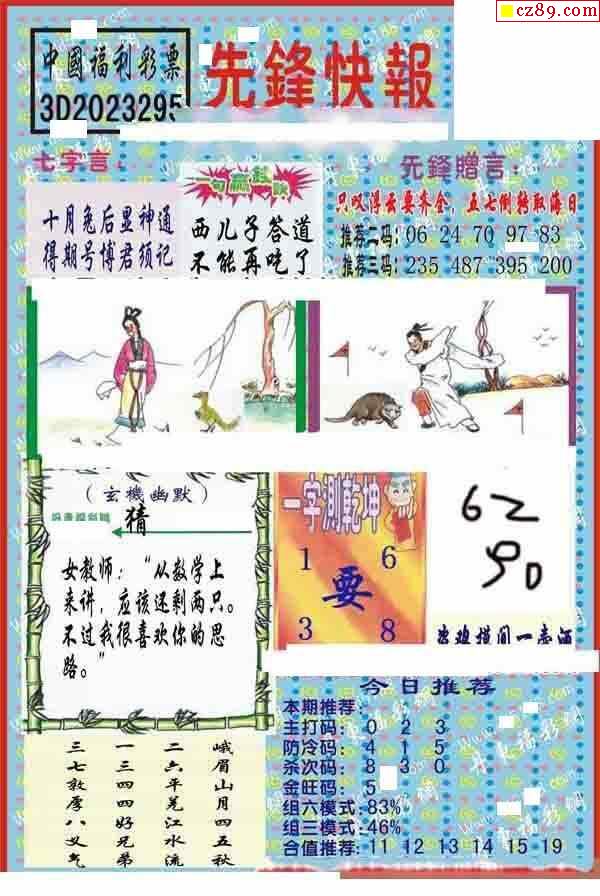 cz89.com
中國福利彩票
3D2023295
先鋒快報
七字言：
十月兔后显神通
得期号博君须记
句赢彩诀
西儿子答道
不能再吃了
先鋒贈言：
只叹浮云要齐全，五七倒转取海日
推荐二码：06 24 70 97 83
推荐三码：235 487 395 200
（玄機幽默）
猜
女教师：“从数学上
来讲，应该还剩两只。
不过我很喜欢你的思
路。”
一字測乾坤
1 6
要
3 8
62
90
今日推荐
本期推荐：
主打码：0 2 3
防冷码：4 1 5
杀次码：8 3 0
金旺码：5
组六模式：83%
组三模式：46%
合值推荐：11 12 13 14 15 19
峨眉山月四五秋
二六平羌江水流
一三四四好兄弟
三七敦厚八义气